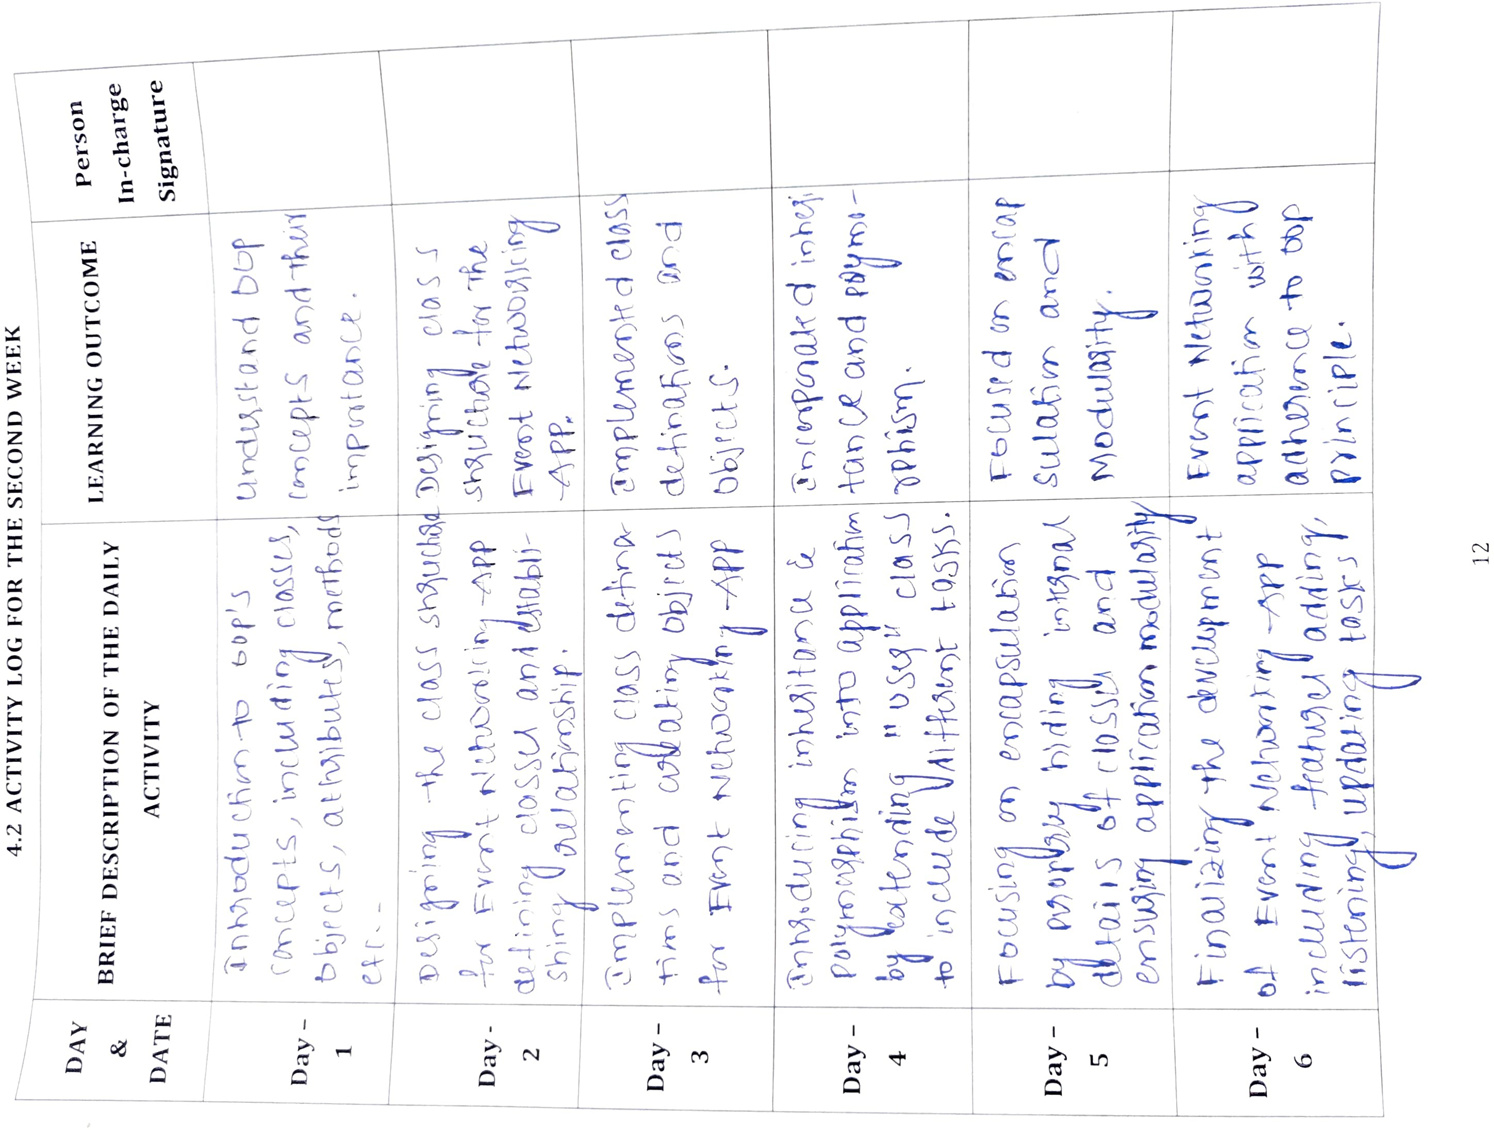 4.2 ACTIVITY LOG FOR THE SECOND WEEK
DAY
&
DATE
BRIEF DESCRIPTION OF THE DAILY
ACTIVITY
LEARNING OUTCOME
Person
In-charge
Signature
Day –
1
Introduction to OOP's
concepts, including classes,
objects, attributes, methods
etc..
Understand OOP
concepts and their
importance.
Day -
2
Designing the class structure
for Event Networking App
defining classes and establi-
shing relationship.
Designing class
structure for the
Event Networking
App.
Day –
3
Implementing class defina
tions and creating objects
for Event Networking App
Implemented class
definations and
objects.
Day –
4
Introducing inheritance &
polymorphism into application
by extending "user" class
to include different tasks.
Incorporated inheri
tance and polymo-
rphism.
Day –
5
Focusing on encapsulation
by hiding internal
details of classes and
ensuring application modularity
Focused on encap
sulation and
Modularity.
Day –
6
Finalizing the development
of Event Networking App
including features adding,
listening, updating tasks
Event Networking
application with
adherence to OOP
principle.
12